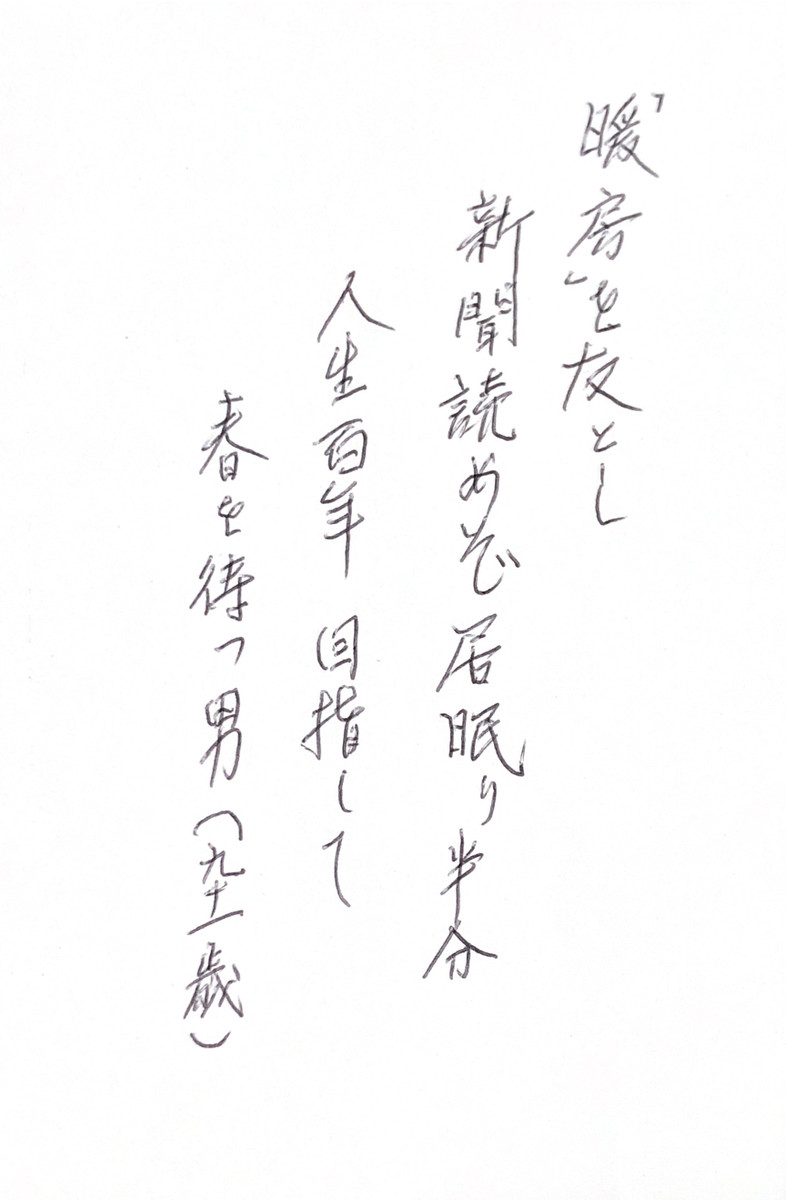 「暖房」を友とし
新聞読めど居眠り半分
人生百年 目指して
春を待つ男(九十一歳)